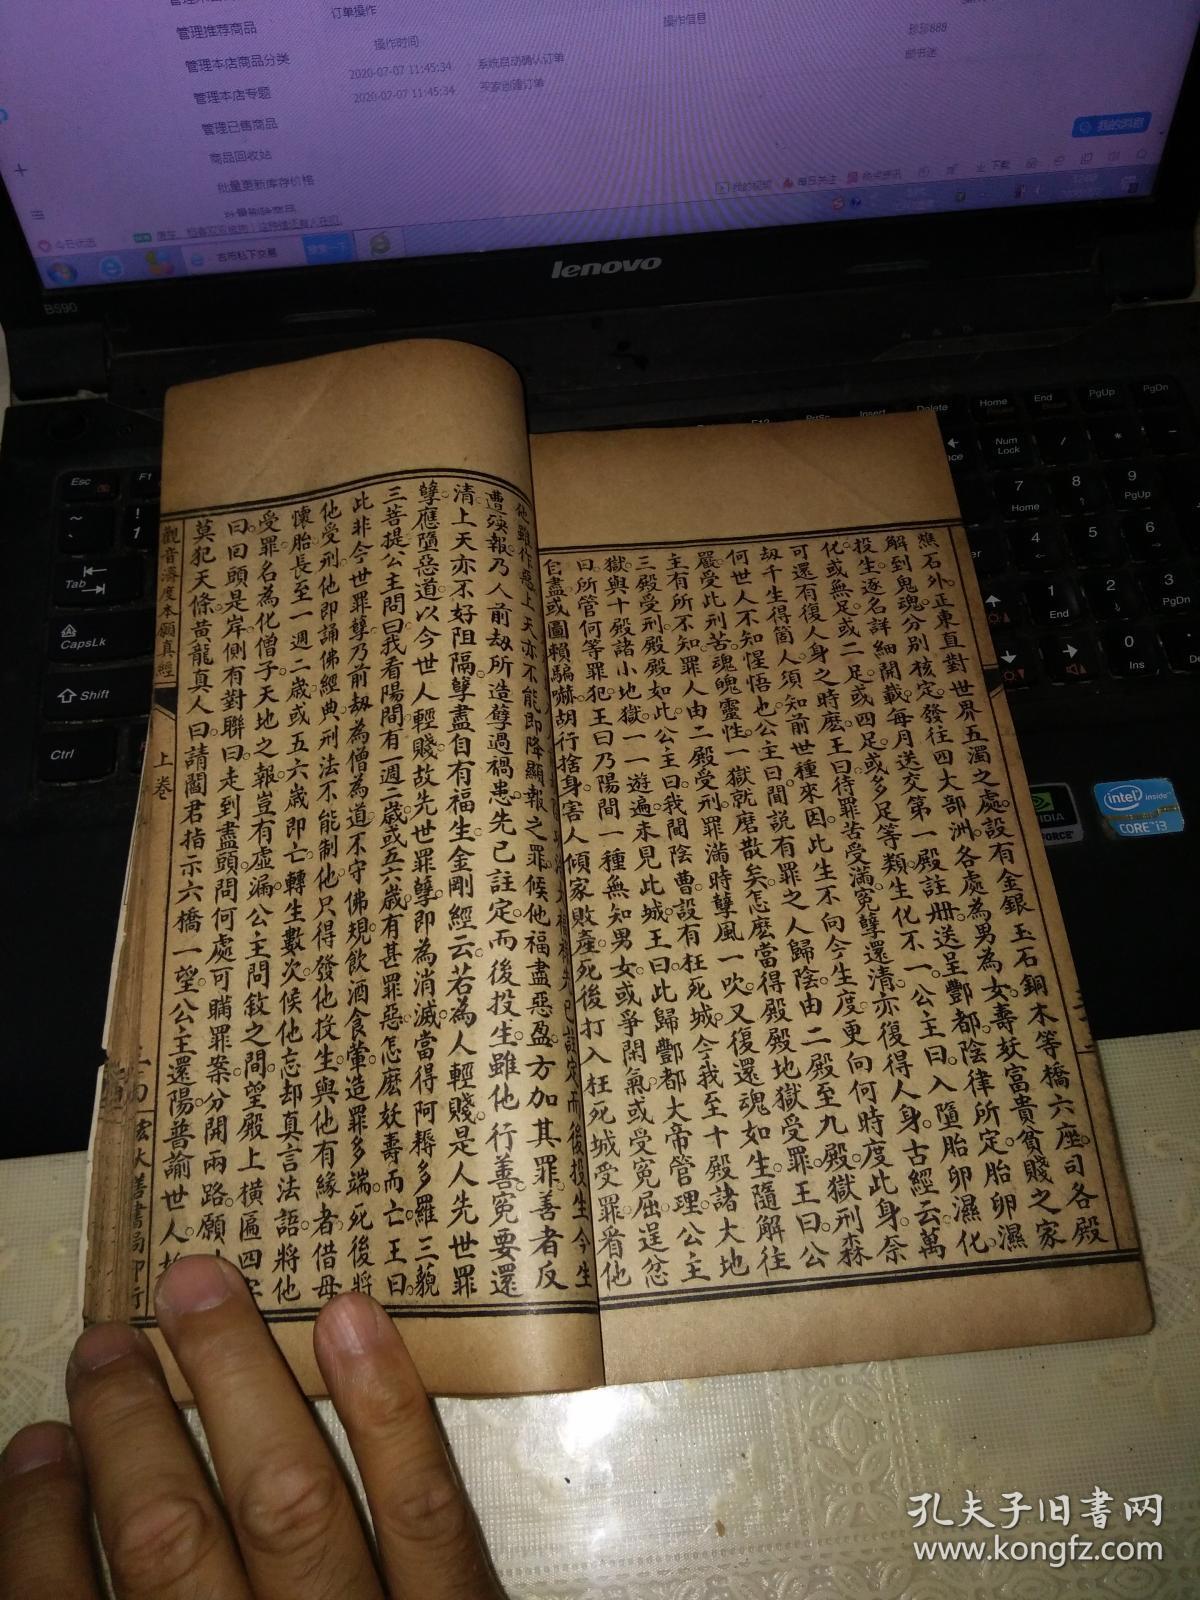 管理推荐商品
管理本店商品分类
管理本店专题
管理已售商品
商品回收站
批量更新库存价格
订单操作
操作时间
操作信息
2020-07-07 11:45:34 系统自动确认订单
2020-07-07 11:45:34 买家创建订单
我的消息
lenovo
B590
燋石外正東直對世界五濁之處設有金銀玉石銅木等橋六座司各殿
解到鬼魂分别核定發往四大部洲各處為男為女壽妖富貴貧賤之家
投生逐名詳細開載每月送交第一殿註册送呈酆都陰律所定胎卵濕
化或無足或二足或四足或多足等類生化不一公主曰入墮胎卵濕化
可還有復人身之時麽王曰待罪苦受滿冤孽還清亦復得人身古經云萬
刼千生得箇人須知前世種來因此生不向今生度更向何時度此身奈
何世人不知惺悟也公主曰聞說有罪之人歸陰由二殿至九殿獄刑森
嚴受此刑苦魂魄靈性一獄就磨散矣怎麽當得殿殿地獄受罪王曰公
主有所不知罪人由二殿受刑罪滿時孽風一吹又復還魂如生隨解往
三殿受刑殿殿如此公主曰我聞陰曹設有枉死城今我至十殿諸大地
獄與十殿諸小地獄一一遊遍未見此城王曰此歸酆都大帝管理公主
曰所管何等罪犯王曰乃陽間一種無知男女或爭閑氣或受冤屈逞忿
自盡或圖賴騙嚇胡行捨身害人傾家敗產死後打入枉死城受罪看他
他雖作惡上天亦不能即降顯報之罪候他福盡惡盈方加其罪善者反
遭殃報乃人前刼所造孽過禍患先已註定而後投生雖他行善冤要還
清上天亦不好阻隔孽盡自有福生金剛經云若為人輕賤是人先世罪
孽應墮惡道以今世人輕賤故先世罪孽即為消滅當得阿耨多羅三藐
三菩提公主問曰我看陽間有一週二歲或五六歲有甚罪惡怎麽妖壽而亡王曰
此非今世罪孽乃前刼為僧為道不守佛規飲酒食葷造罪多端死後將
他受刑他即誦佛經典刑法不能制他只得發他投生與他有緣者借母
懷胎長至一週二歲或五六歲即亡轉生數次候他忘却真言法語將他
受罪名為化僧子天地之報豈有虛漏公主問敘之間望殿上橫匾四字
曰回頭是岸側有對聯曰走到盡頭問何處可瞞罪案分開兩路願
莫犯天條黄龍真人曰請閻君指示六橋一望公主還陽普諭世人
觀音濟度本願真經
上卷
宏大善書局印行
intel inside
CORE i3
孔夫子旧书网
www.kongfz.com